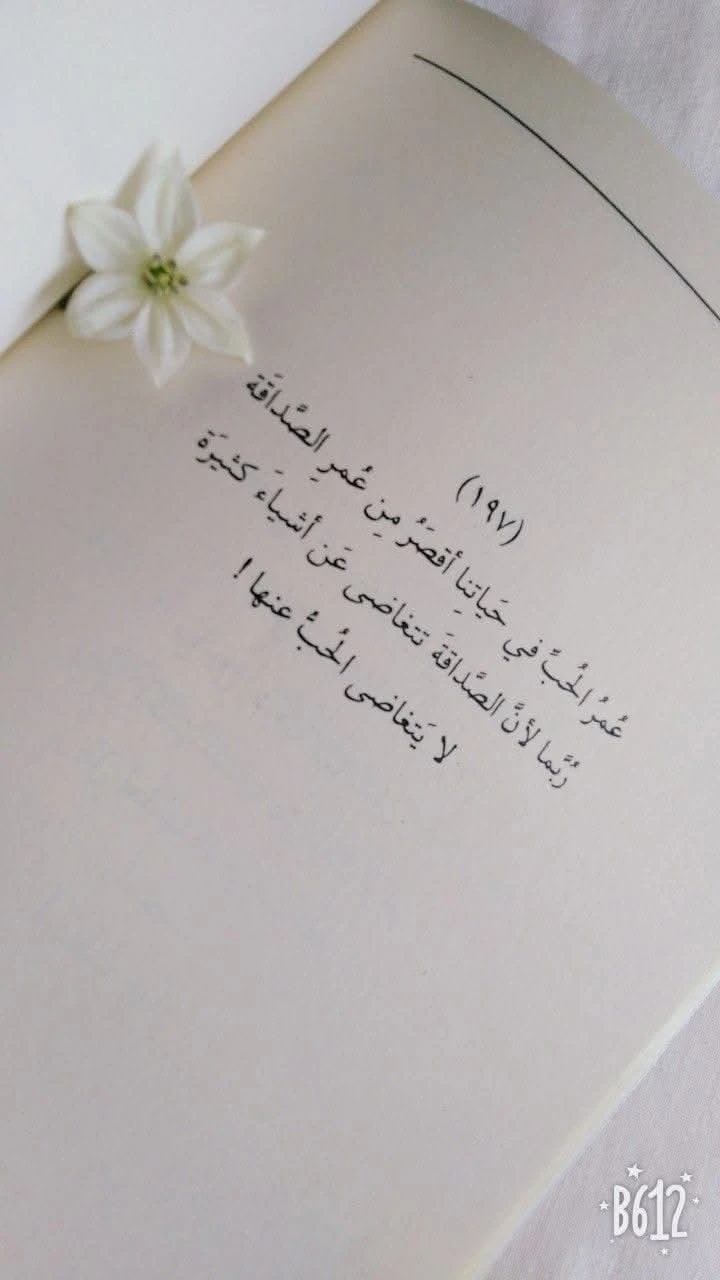 (١٩٧)
عُمرُ الحُبِّ في حَياتنِا أقصَرُ مِن عُمرِ الصَّداقَة
رُبَّما لأنَّ الصَّداقةَ تتغاضى عَن أشياَءَ كثيرَة
لا يَتغاضى الحُبُّ عنها!
B612